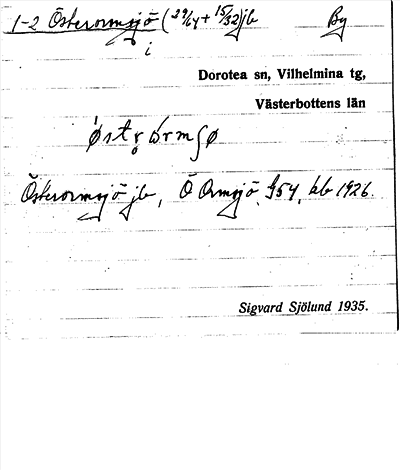 1-2 Österormsjö (29/64 + 15/32) jb By
i
Dorotea sn, Vilhelmina tg,
Västerbottens län
Österormsjö jb, Ö Ormsjö, §54, kb 1926
Sigvard Sjölund 1935.